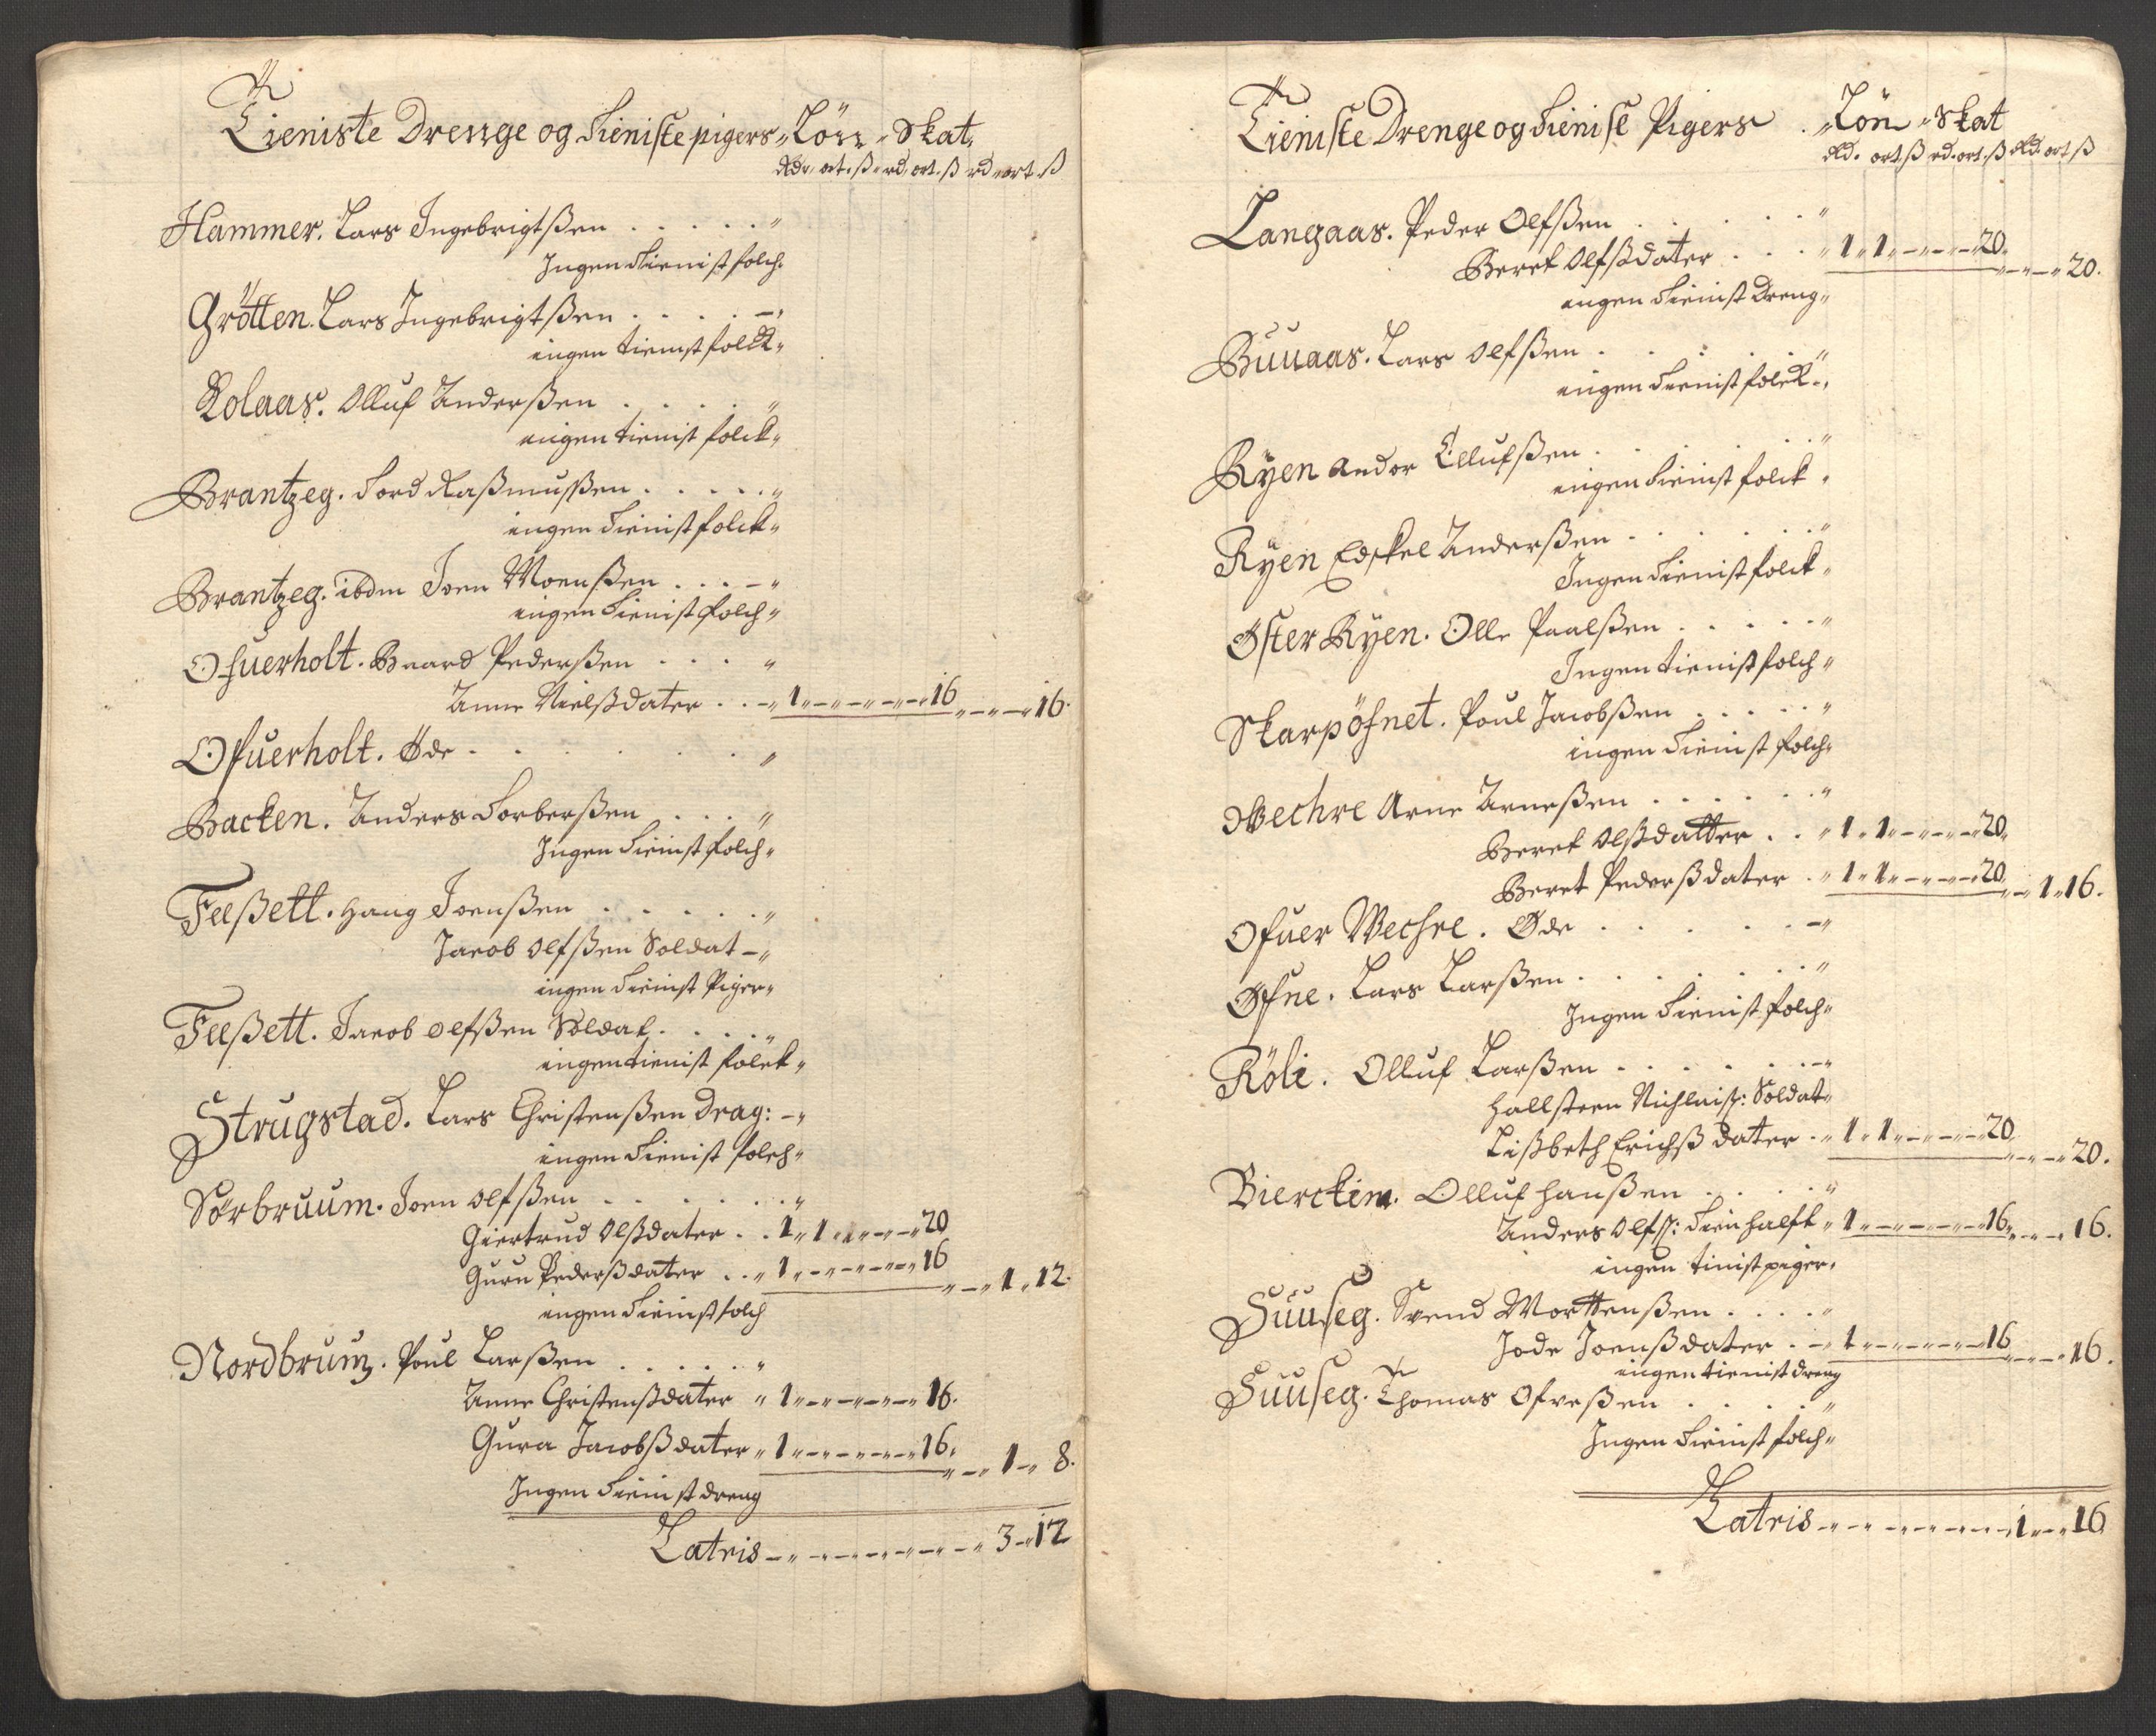 Tieniste Drenge og Tieniste pigers Lön Skat
Rdr. ort. ß rd. ort. ß rd ort ß
Hammer. Lars Ingebrigtßen
Ingen Tienist folch
Grötten. Lars Ingebrigtßen
ingen tienist folck
Kolaas. Olluf Anderßen
ingen tienist folck
Brantzeg. Tord Raßmußen
ingen Tienist folck
Brantzeg. ibdm Joen Moenßen
ingen Tienist folch
Ofuerholt. Baard Pederßen
Anne Nielßdater 1 - - 16 - - 16.
Ofuerholt. Öde
Backen. Anders Torberßen
Ingen Tienist folch
Feßett. Haag Joenßen
Jacob Olfßen Soldat
ingen Tienist Piger
Feßett. Jacob Olfßen Soldat
ingen tienist folck
Strugstad. Lars Christenßen Drag:
ingen Tienist folch
Sörbruum. Joen Olfßen
Giertrud Olßdater 1 1 - - 20
Guru Pederßdater 1 - - 16 - 1 12.
ingen Tienist folch
Nordbrum. Poul Larßen
Anne Christenßdater 1 - - 16.
Gura Jacobßdater 1 - - 16. - 1 - 8.
Ingen Tienist dreng
Latris - - 3 - 12
Tieniste Drenge og Tienise Pigers Lön Skat
Rd. ort. ß rd. ort. ß Rd. ort ß
Langaas. Peder Olfßen
Beret Olfßdater 1 1 - - 20. - - 20.
ingen Tienist Dreng
Buuaas. Lars Olfßen
ingen Tienist folck
Ryen Andor Ellufßen
ingen Tienist folck
Ryen Edskel Anderßen
Ingen Tienist folck
Öster Ryen. Olle Paalßen
Ingen tienist folch
Skarpöfnet. Poul Jacobßen
ingen Tienist folch
Wechre Arne Arneßen
Beret Olßdatter 1 1 - - 20.
Beret Pederßdater 1 1 - - 20 - 1 16.
Ofuer Wechre. Øde
Øfne. Lars Larßen
Ingen Tienist folch
Röli. Olluf Larßen
Hallsteen Nichlaiß: Soldat
Lißbeth Erichß dater 1 1 - - 20. - - 20.
Bierckem. Olluf Hanßen
Anders Olfß: Tien halft 1 - - 16. - - 16.
ingen tinist piger
Suuseg. Svend Morttenßen
Jode Joenßdater 1 - - 16 - - 16.
ingen tienist dreng
Suuseg. Thomas Ofveßen
Ingen Tienist folch
Latris - - 1 - 16